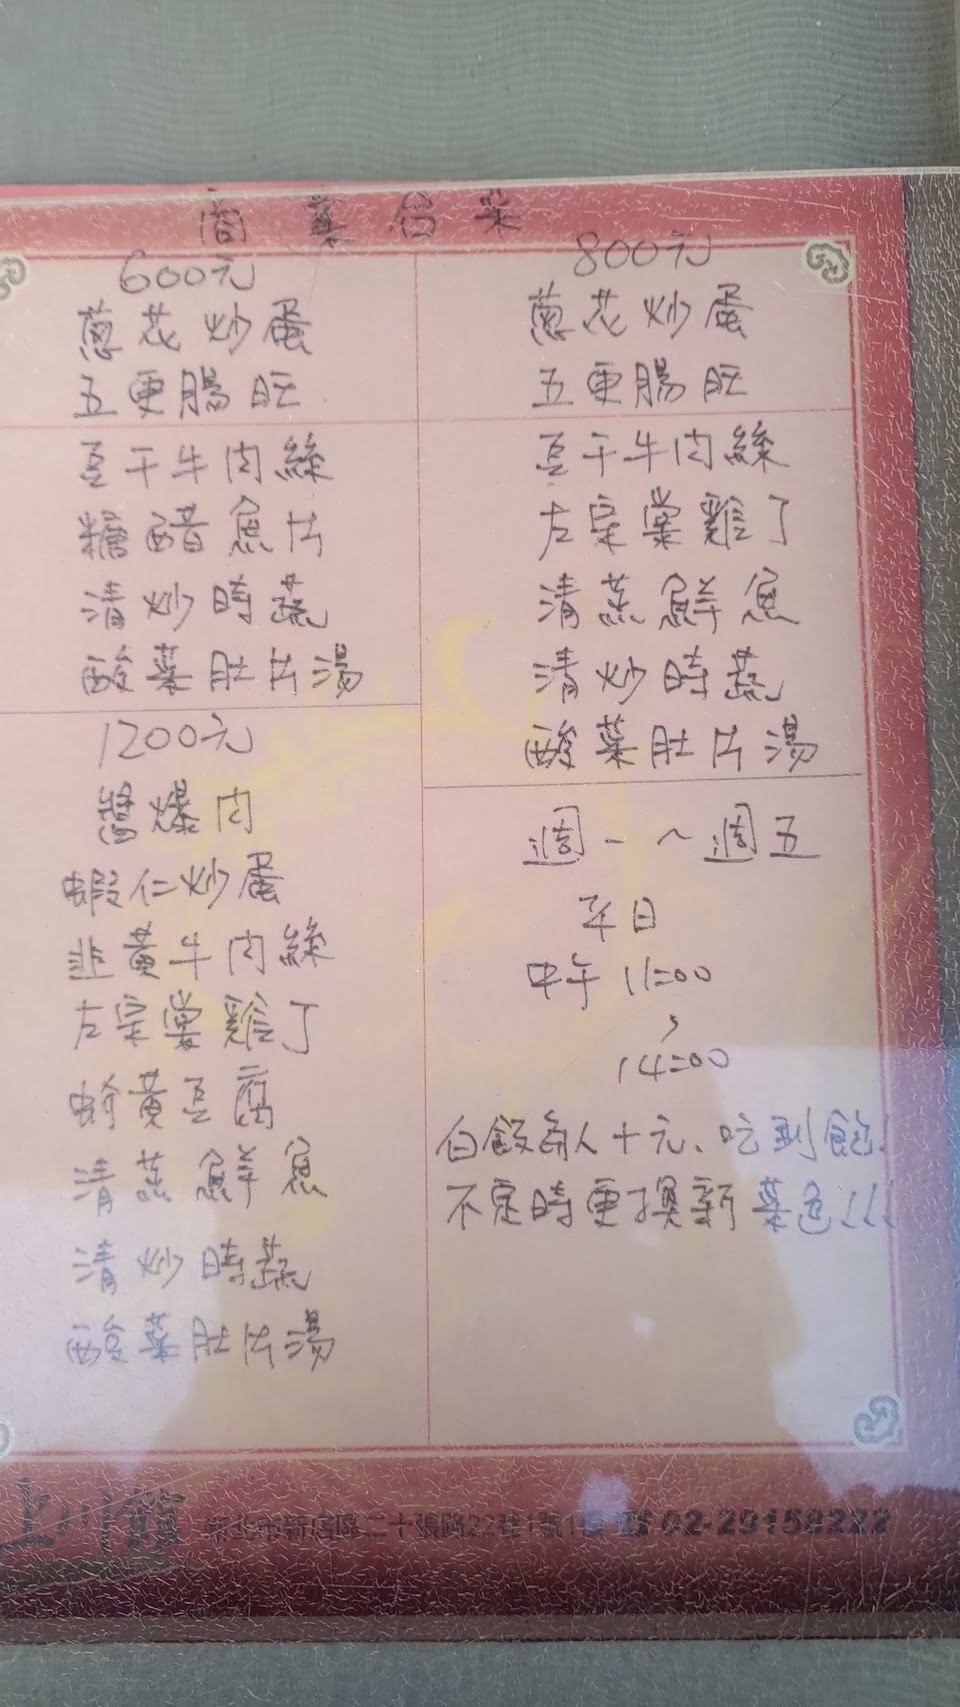 商業合菜
600元
蔥花炒蛋
五更腸旺
豆干牛肉絲
糖醋魚片
清炒時蔬
酸菜肚片湯
1200元
醬爆肉
蝦仁炒蛋
韭黃牛肉絲
左宗棠雞丁
蚵黃豆腐
清蒸鮮魚
清炒時蔬
酸菜肚片湯
800元
蔥花炒蛋
五更腸旺
豆干牛肉絲
左宗棠雞丁
清蒸鮮魚
清炒時蔬
酸菜肚片湯
週一~週五
平日
中午 11:00
~
14:00
白飯每人十元、吃到飽!
不定時更換新菜色!!!
上川館
新北市新店區二十張路22巷1號1樓 TEL 02-29158222